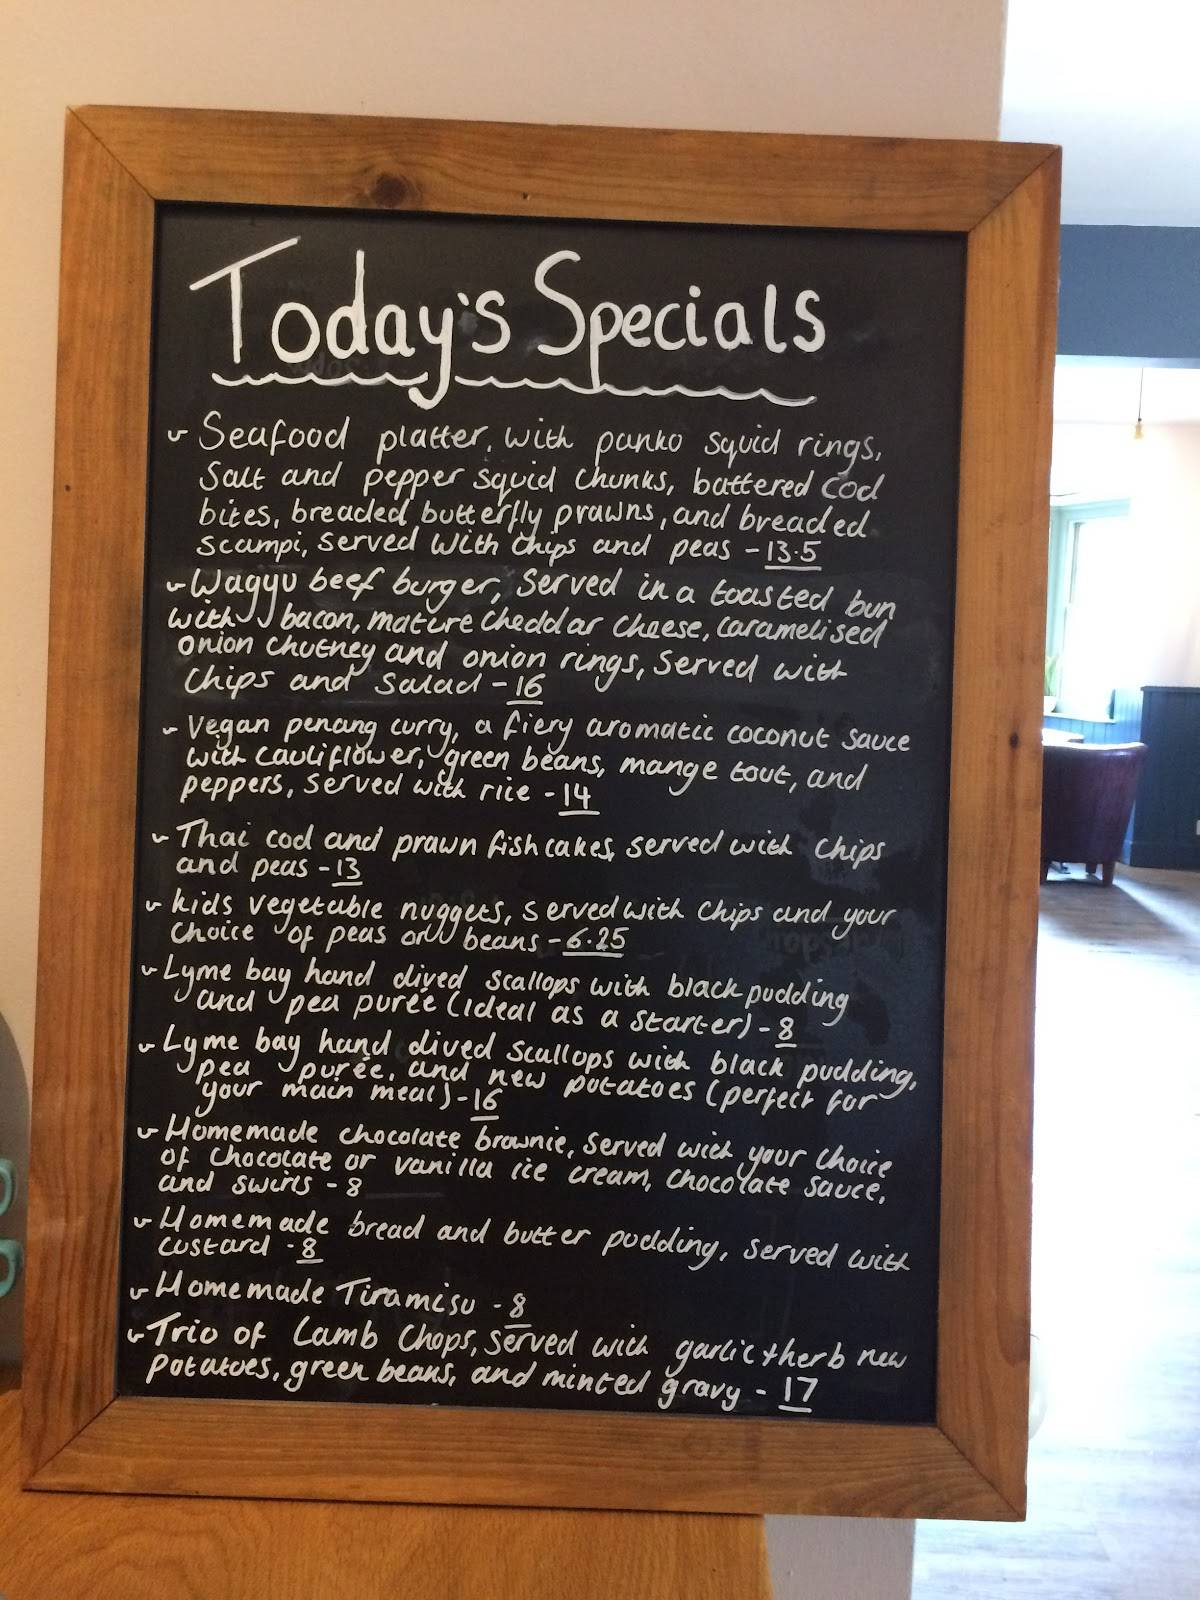 Today's Specials
Seafood platter, with panko squid rings,
Salt and pepper squid chunks, battered cod
bites, breaded butterfly prawns, and breaded
scampi, served with chips and peas - 13.5
Wagyu beef burger, Served in a toasted bun
with bacon, mature cheddar cheese, caramelised
onion chutney and onion rings, served with
chips and salad - 16
Vegan penang curry, a fiery aromatic coconut sauce
with cauliflower, green beans, mange tout, and
peppers, served with rice - 14
Thai cod and prawn fishcakes, served with chips
and peas - 13
kids vegetable nuggets, served with chips and your
choice of peas or beans - 6.25
Lyme bay hand dived scallops with black pudding
and pea purée (ideal as a starter) - 8
Lyme bay hand dived scallops with black pudding,
pea purée, and new potatoes (perfect for
your main meal) - 16
Homemade chocolate brownie, served with your choice
of chocolate or vanilla ice cream, chocolate sauce,
and swirls - 8
Homemade bread and butter pudding, served with
custard - 8
Homemade Tiramisu - 8
Trio of Lamb Chops, served with garlic + herb new
potatoes, green beans, and minted gravy - 17